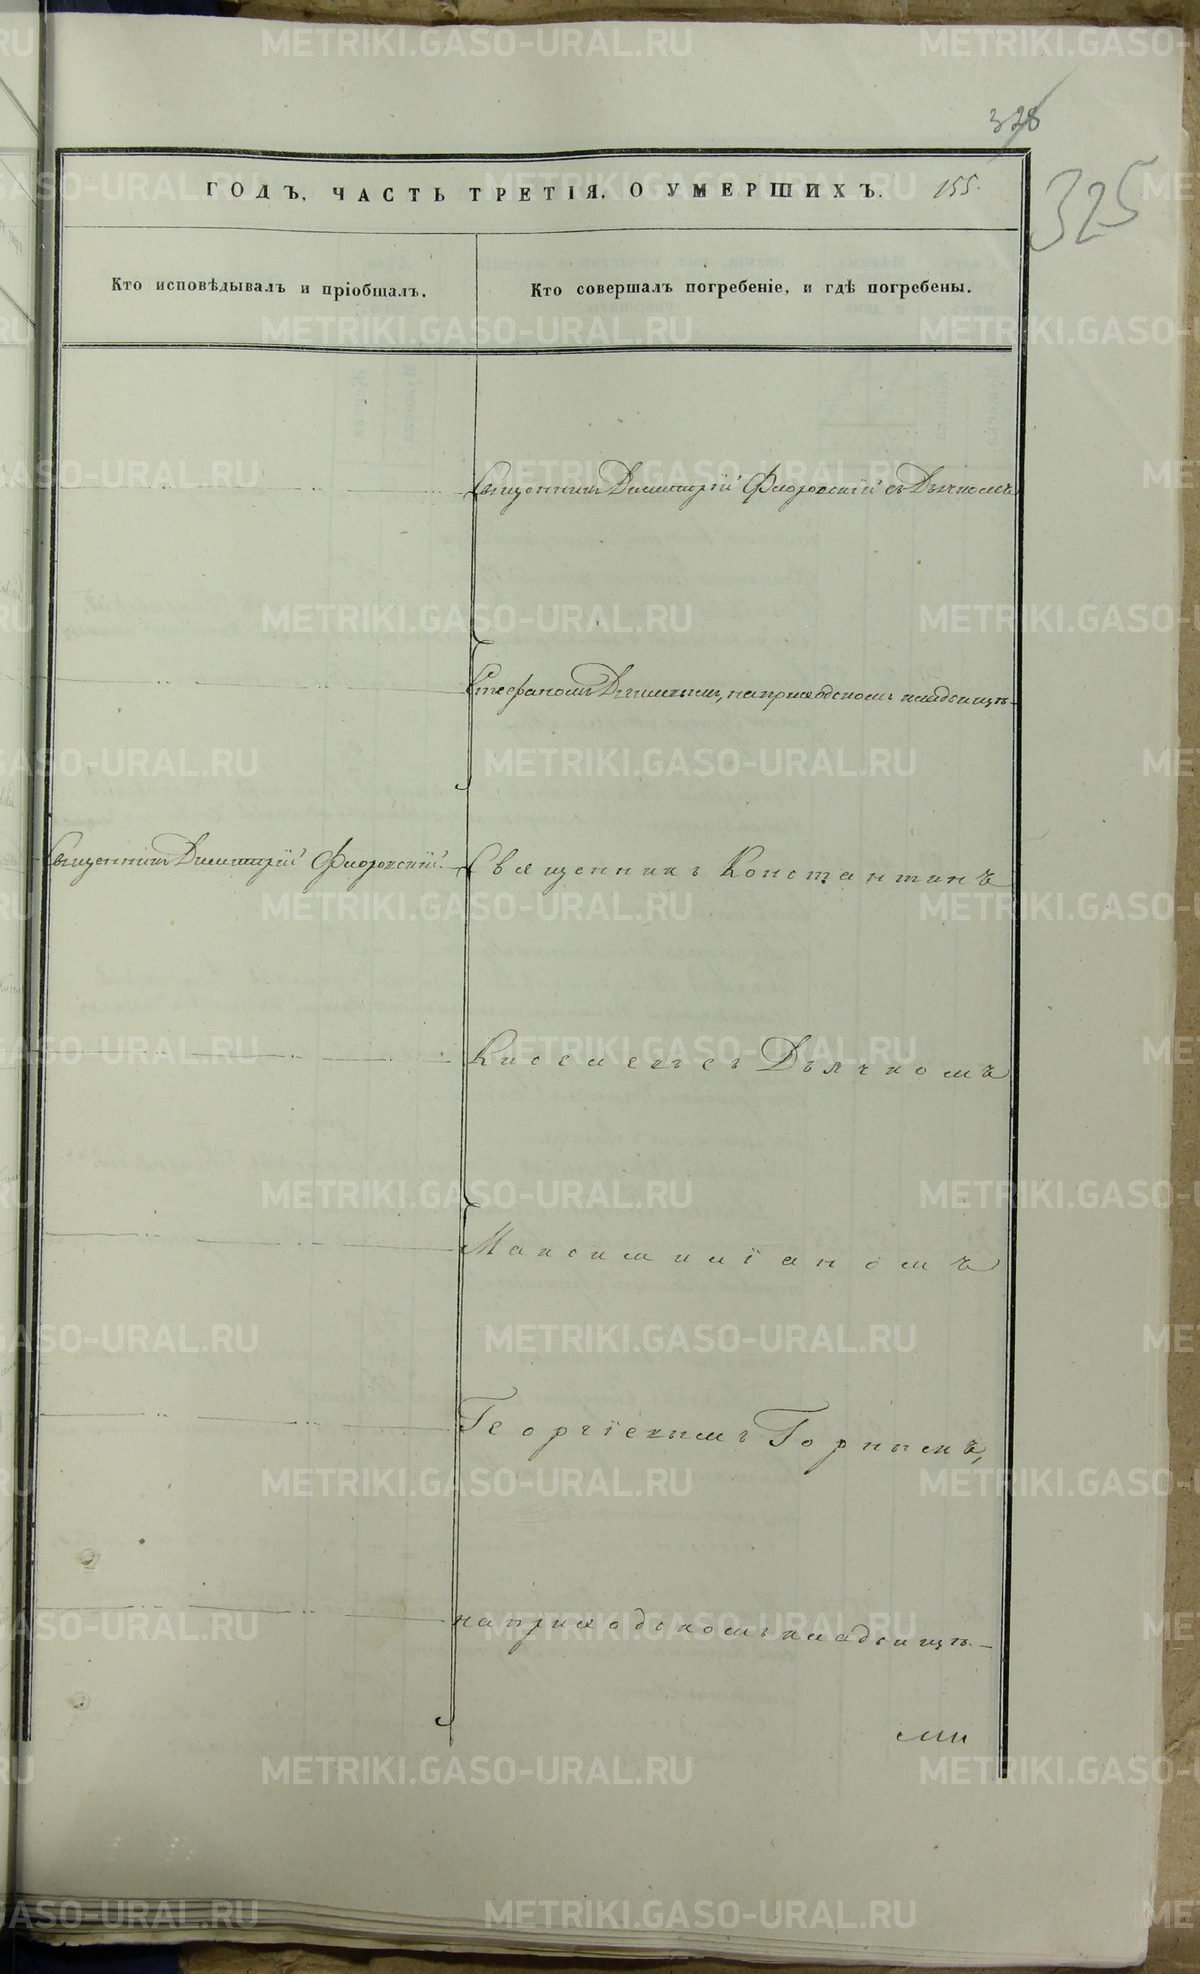 328
325
ГОДЪ, ЧАСТЬ ТРЕТІЯ, О УМЕРШИХЪ. 155.
Кто исповѣдывалъ и пріобщалъ.
Кто совершалъ погребеніе, и гдѣ погребены.
Священникъ Димитрій Флоровскій съ Дьячкомъ
Стефаномъ на приходскомъ кладбищѣ
Священникъ Димитрій Флоровскій.
Священникъ Константинъ
Киселевъ съ Дьячкомъ
Максимиліаномъ
Георгіевымъ Горнымъ,
на приходскомъ кладбищѣ
METRIKI.GASO-URAL.RU